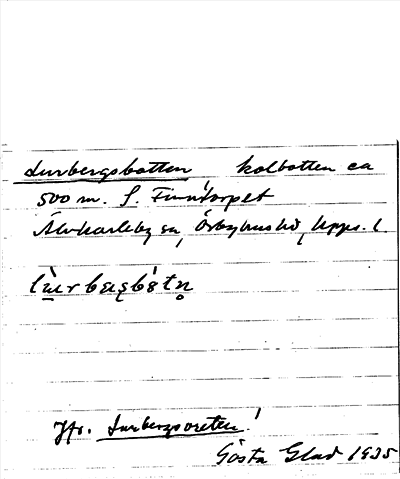 Lurbergsbotten kolbotten ca
500 m. S. Finntorpet
Älvkarleby sn, Örbyhus hd, Upps. l.
Jfr. Lurbergsvreten!
Gösta Glad 1935